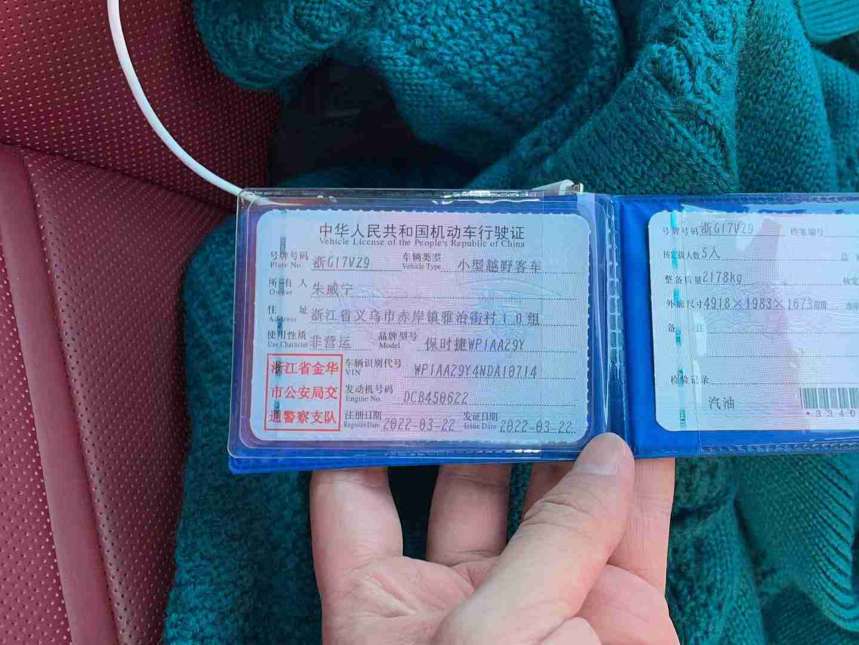 中华人民共和国机动车行驶证
Vehicle License of the People's Republic of China
号牌号码 浙G17V29 车辆类型 小型越野客车
Plate No. Vehicle Type
所有人 朱威宁
Owner
住址 浙江省义乌市赤岸镇雅治街村10组
Address
使用性质 非营运 品牌型号 保时捷WP1AA29Y
Use Character Model
浙江省金华
市公安局交
通警察支队
车辆识别代号 WP1AA29Y4NDA10714
VIN
发动机号码 DCB450622
Engine No.
注册日期 2022-03-22 发证日期 2022-03-22
Register Date Issue Date
号牌号码 浙G17V29 档案编号
核定载人数 5人
整备质量 2178kg
外廓尺寸 4918×1983×1673
备注
检验记录
汽油
*3340